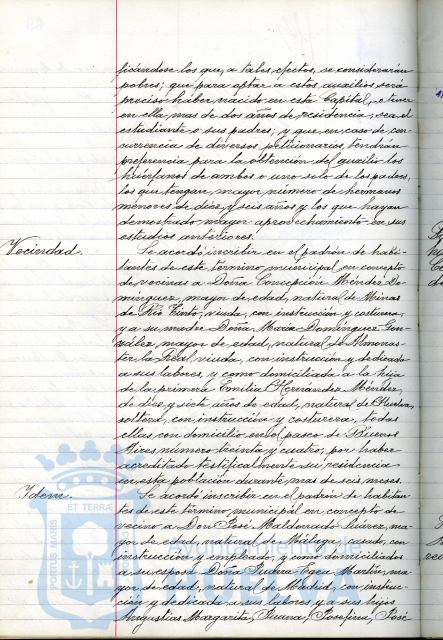 ficándose los que, a tales efectos, se considerarán
pobres; que para optar a estos auxilios será
preciso haber nacido en esta Capital, o llevar
en ella, mas de dos años de residencia, sea el
estudiante o sus padres; y que en caso de con-
currencia de diversos peticionarios, tendrán
preferencia para la obtención del auxilio los
huérfanos de ambos o uno solo de los padres,
los que tengan mayor número de hermanos
menores de diez y seis años y los que hayan
demostrado mayor aprovechamiento en sus
estudios anteriores.
Vecindad.
Se acordó inscribir en el padrón de habi-
tantes de este término municipal en concepto
de vecinas a Doña Concepción Méndez Do-
mínguez, mayor de edad, natural de Minas
de Río Tinto, viuda, con instrucción y costurera,
y a su madre Doña María Domínguez Gon-
zález, mayor de edad, natural de Almonas-
ter la Real, viuda, con instrucción y dedicada
a sus labores, y como domiciliada a la hija
de la primera Emilia Hernández Méndez,
de diez y siete años de edad, natural de Huelva,
soltera, con instrucción y costurera, todas
ellas, con domicilio en el paseo de Buenos
Aires, número treinta y cuatro, por haber
acreditado testificalmente su residencia
en esta población durante mas de seis meses.
Idem.
Se acordó inscribir en el padrón de habitan-
tes de este término municipal en concepto de
vecino a Don José Maldonado Suárez, ma-
yor de edad, natural de Málaga, casado, con
instrucción y empleado, y como domiciliados
a su esposa Doña Egea Martín, ma-
yor de edad, natural de Madrid, con instruc-
ción y dedicada a sus labores y a sus hijos
Angustias Margarita, Juana, Josefina, José
PORTUS MARIS
ET TERRAE